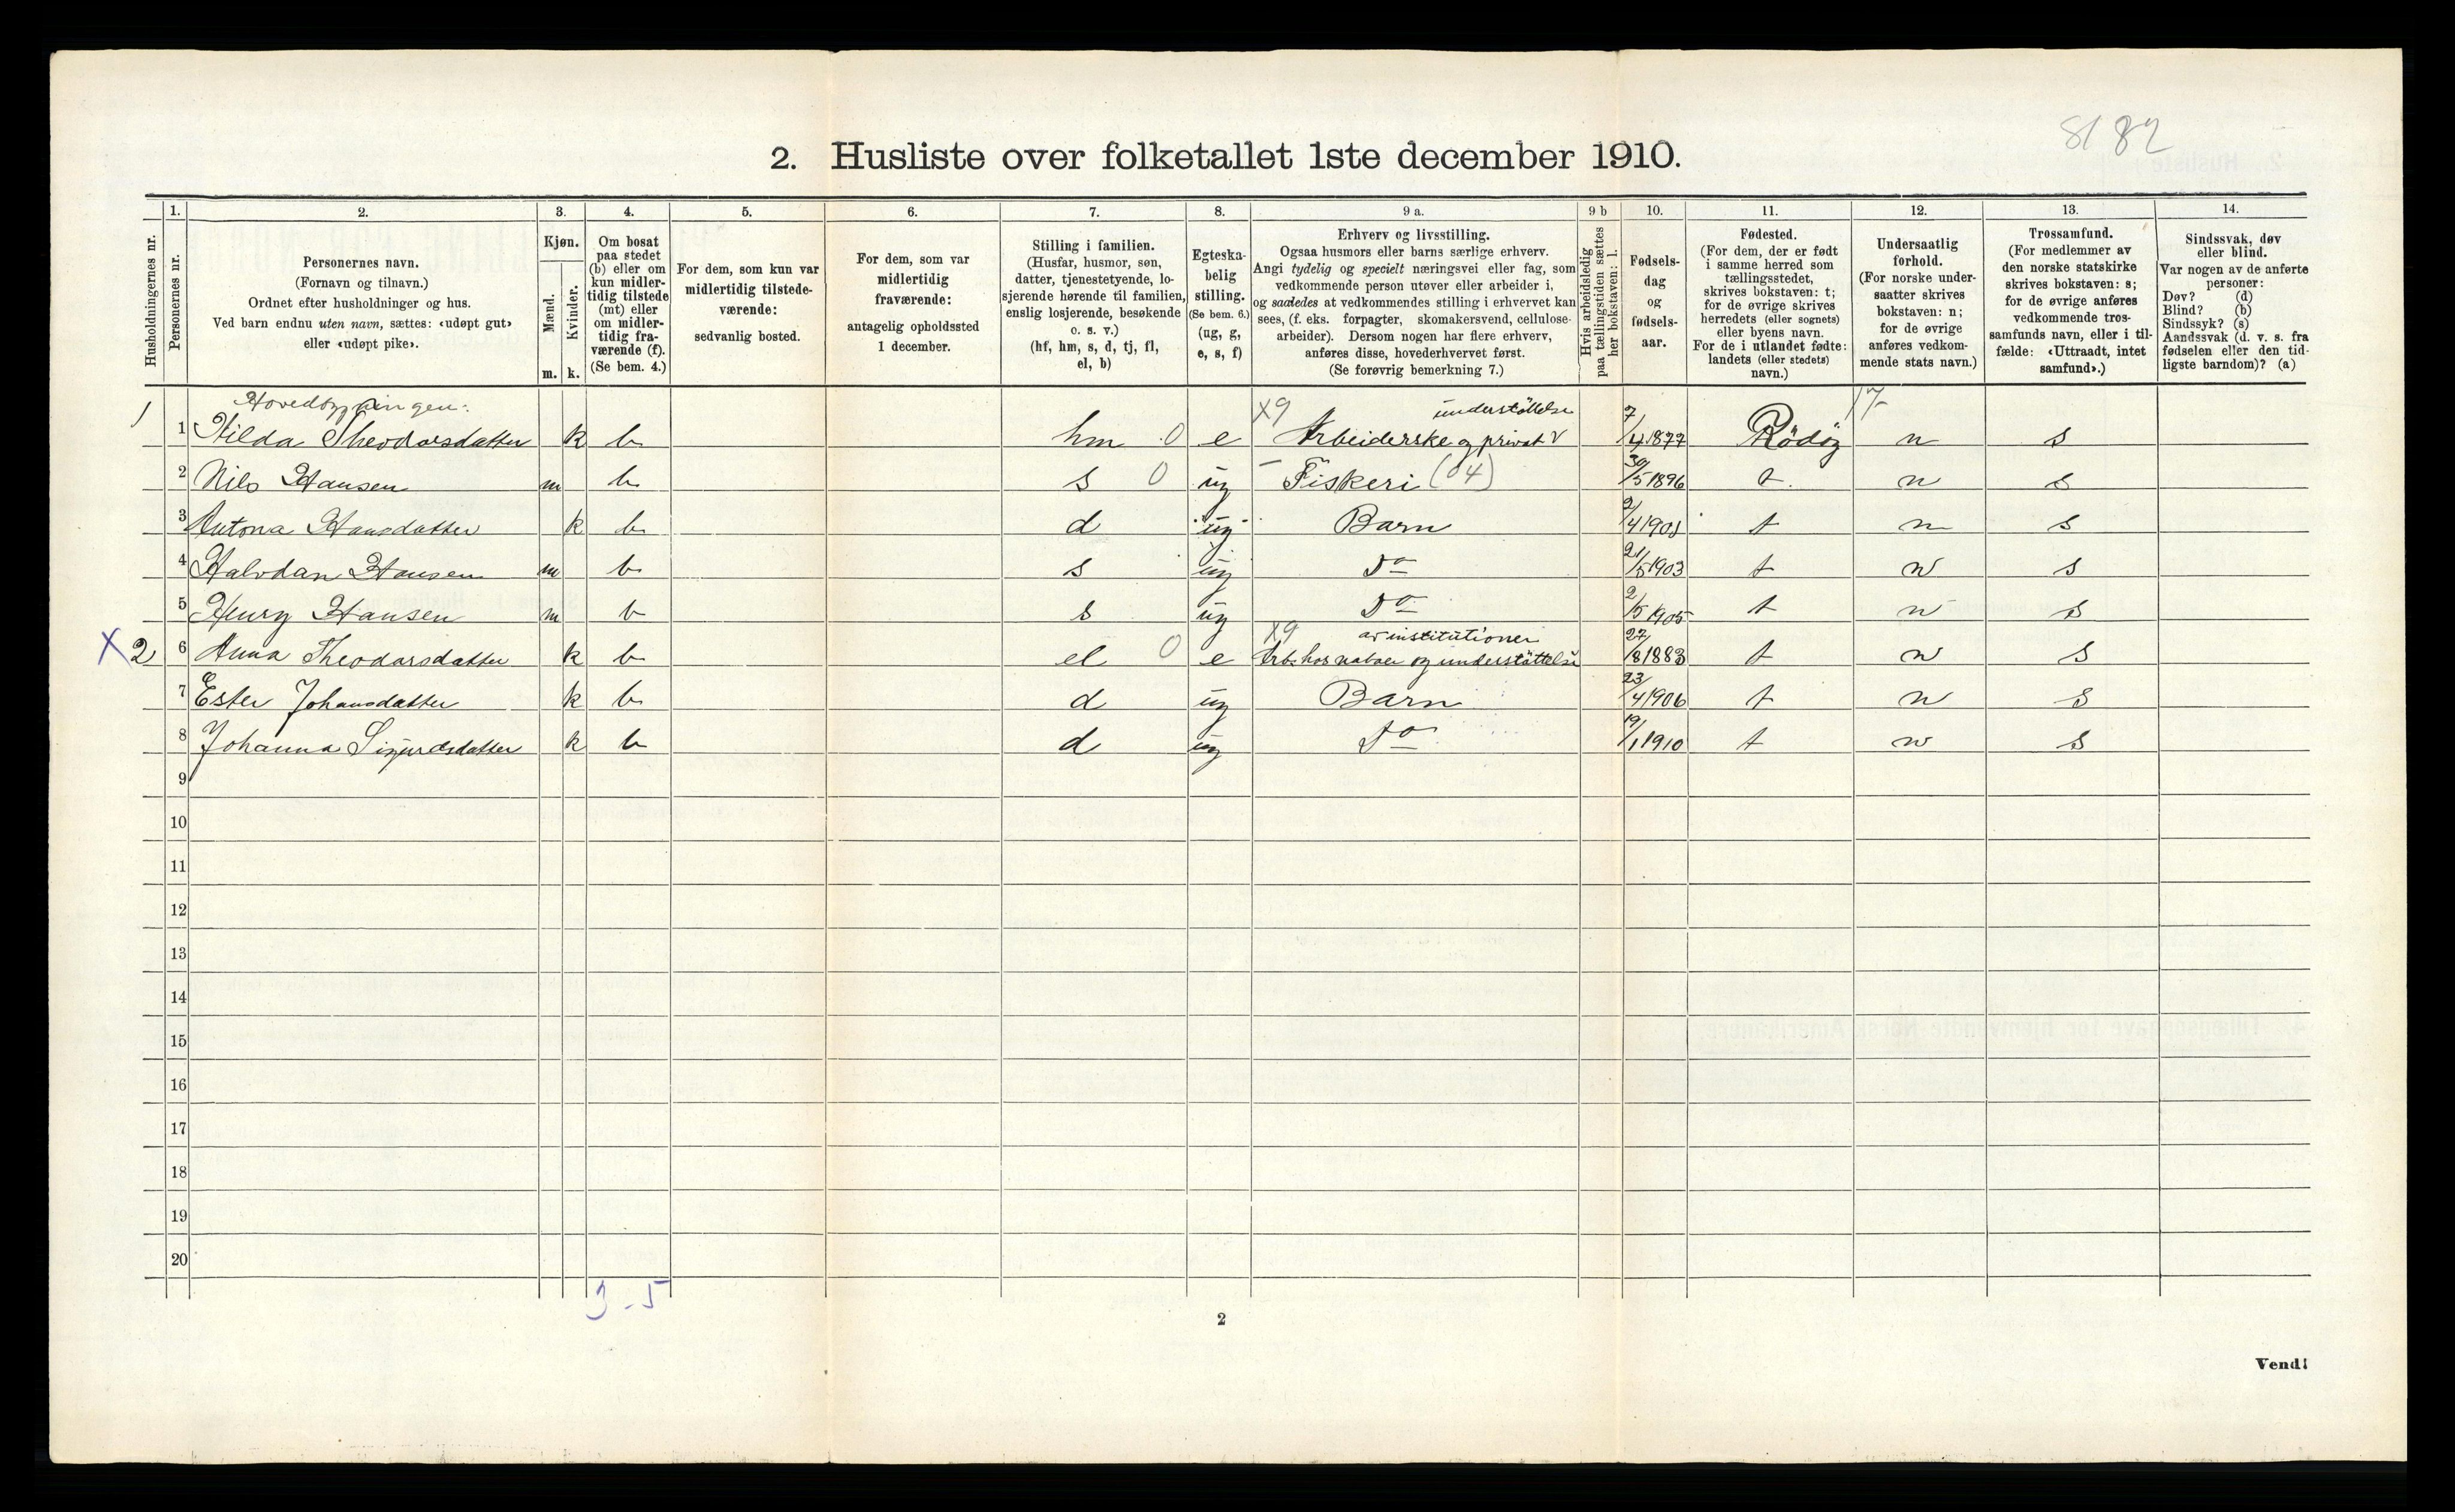 8182
2. Husliste over folketallet 1ste december 1910.
1. 2. 3. 4. 5. 6. 7. 8. 9 a. 9 b 10. 11. 12. 13. 14.
Husholdningernes nr.
Personernes nr.
Personernes navn.
(Fornavn og tilnavn.)
Ordnet efter husholdninger og hus.
Ved barn endnu uten navn, sættes: «udøpt gut»
eller «udøpt pike».
Kjøn.
Mænd.
Kvinder.
m. k.
Om bosat
paa stedet
(b) eller om
kun midler-
tidig tilstede
(mt) eller
om midler-
tidig fra-
værende (f).
(Se bem. 4.)
For dem, som kun var
midlertidig tilstede-
værende:
sedvanlig bosted.
For dem, som var
midlertidig
fraværende:
antagelig opholdssted
1 december.
Stilling i familien.
(Husfar, husmor, søn,
datter, tjenestetyende, lo-
sjerende hørende til familien,
enslig losjerende, besøkende
o. s. v.)
(hf, hm, s, d, tj, fl,
el, b)
Egteska-
belig
stilling.
(Se bem. 6.)
(ug, g,
e, s, f)
Erhverv og livsstilling.
Ogsaa husmors eller barns særlige erhverv.
Angi tydelig og specielt næringsvei eller fag, som
vedkommende person utøver eller arbeider i,
og saaledes at vedkommendes stilling i erhvervet kan
sees, (f. eks. forpagter, skomakersvend, cellulose-
arbeider). Dersom nogen har flere erhverv,
anføres disse, hovederhvervet først.
(Se forøvrig bemerkning 7.)
Hvis arbeidsledig
paa tællingstiden sættes
her bokstaven: l.
Fødsels-
dag
og
fødsels-
aar.
Fødested.
(For dem, der er født
i samme herred som
tællingsstedet,
skrives bokstaven: t;
for de øvrige skrives
herredets (eller sognets)
eller byens navn.
For de i utlandet fødte:
landets (eller stedets)
navn.)
Undersaatlig
forhold.
(For norske under-
saatter skrives
bokstaven: n;
for de øvrige
anføres vedkom-
mende stats navn.)
Trossamfund.
(For medlemmer av
den norske statskirke
skrives bokstaven: s;
for de øvrige anføres
vedkommende tros-
samfunds navn, eller i til-
fælde: «Uttraadt, intet
samfund».)
Sindssvak, døv
eller blind.
Var nogen av de anførte
personer:
Døv? (d)
Blind? (b)
Sindssyk? (s)
Aandssvak (d. v. s. fra
fødselen eller den tid-
ligste barndom)? (a)
Hovedbygningen: X9 understöttelse 17
1 1 Hilda Theodorsdatter k b hm 0 e Arbeiderske og privat 7/4 1877 Rödöy n s
2 Nils Hansen m b s 0 ug Fiskeri (04) 30/5 1896 t. n s
3 Antona Hansdatter k b d ug Barn 2/4 1901 t n s
4 Halvdan Hansen m b s ug Do 21/5 1903 t n s
5 Henry Hansen m b s ug Do 2/5 1905 t n s
X9 av institutioner
X 2 6 Anna Theodorsdatter k b el 0 e Arb. hos naboer og understöttelse 27/8 1883 t n s
7 Ester Johansdatter k b d ug Barn 23/4 1906 t n s
8 Johanna Sigurdsdatter k b d ug Do 19/1 1910 t n s
9
10
11
12
13
14
15
16
17
18
19
20
3 - 5
2
Vend!